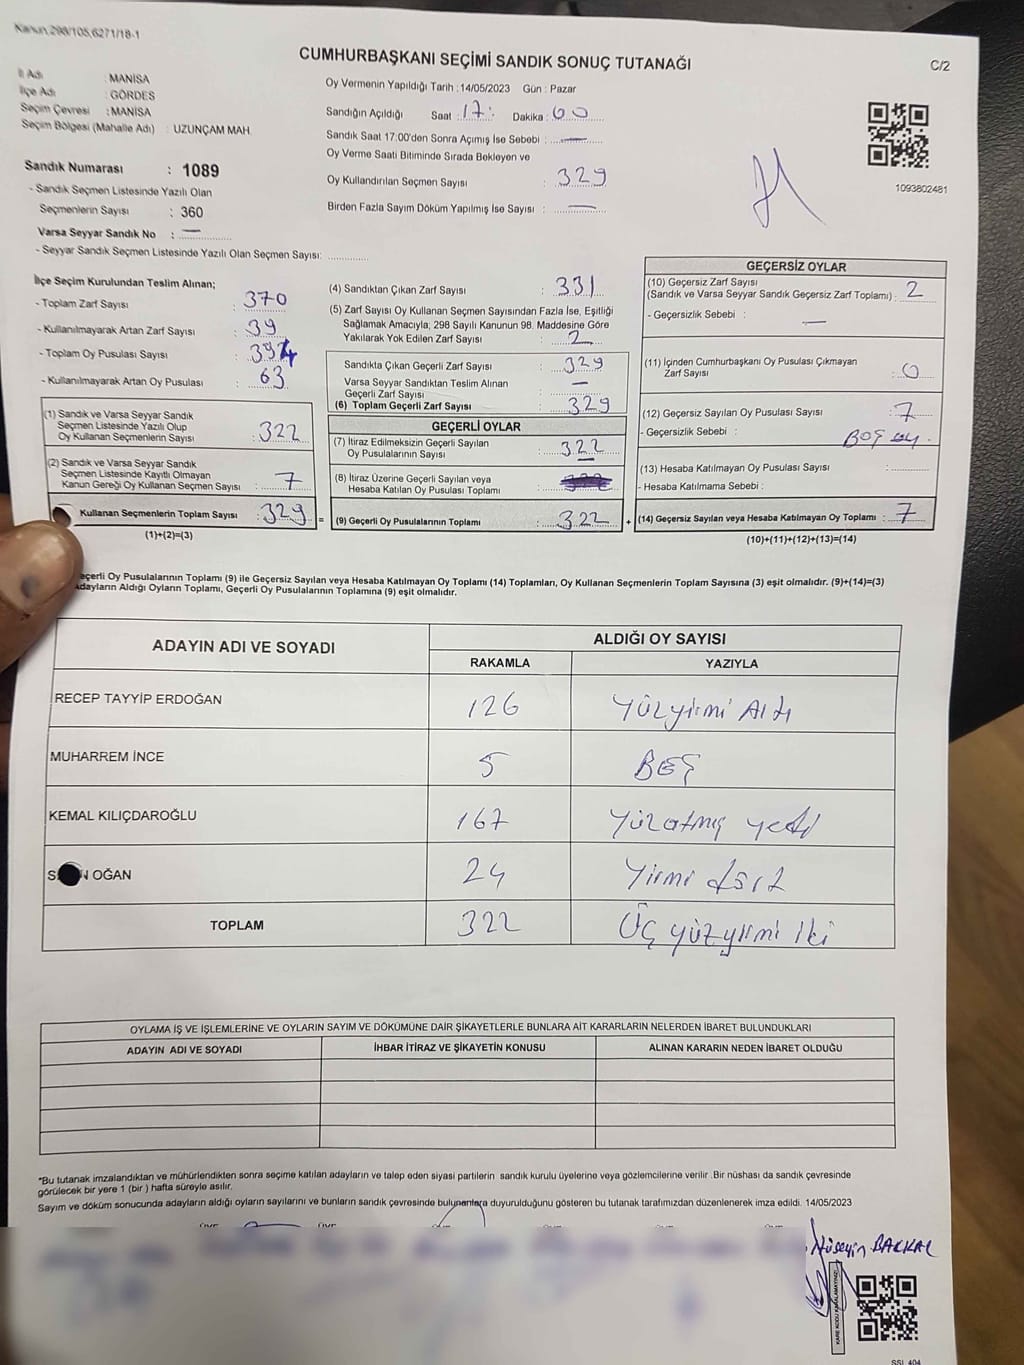 Kanun.298/105,6271/18-1
CUMHURBAŞKANI SEÇİMİ SANDIK SONUÇ TUTANAĞI
C/2
İl Adı : MANİSA
İlçe Adı : GÖRDES
Seçim Çevresi : MANİSA
Seçim Bölgesi (Mahalle Adı) : UZUNÇAM MAH.
Sandık Numarası : 1089
- Sandık Seçmen Listesinde Yazılı Olan
Seçmenlerin Sayısı : 360
Varsa Seyyar Sandık No : —
- Seyyar Sandık Seçmen Listesinde Yazılı Olan Seçmen Sayısı: ..............
Oy Vermenin Yapıldığı Tarih : 14/05/2023 Gün : Pazar
Sandığın Açıldığı Saat : 17: Dakika : 00
Sandık Saat 17.00'den Sonra Açımış İse Sebebi : —
Oy Verme Saati Bitiminde Sırada Bekleyen ve
Oy Kullandırılan Seçmen Sayısı : 329
Birden Fazla Sayım Döküm Yapılmış İse Sayısı : —
1093802481
İlçe Seçim Kurulundan Teslim Alınan;
- Toplam Zarf Sayısı : 370
- Kullanılmayarak Artan Zarf Sayısı : 39
- Toplam Oy Pusulası Sayısı :
- Kullanılmayarak Artan Oy Pusulası : 63
(1) Sandık ve Varsa Seyyar Sandık
Seçmen Listesinde Yazılı Olup
Oy Kullanan Seçmenlerin Sayısı : 322
(2) Sandık ve Varsa Seyyar Sandık
Seçmen Listesinde Kayıtlı Olmayan
Kanun Gereği Oy Kullanan Seçmen Sayısı : 7
Kullanan Seçmenlerin Toplam Sayısı : 329 =
(1)+(2)=(3)
(4) Sandıktan Çıkan Zarf Sayısı : 331
(5) Zarf Sayısı Oy Kullanan Seçmen Sayısından Fazla İse, Eşitliği
Sağlamak Amacıyla; 298 Sayılı Kanunun 98. Maddesine Göre
Yakılarak Yok Edilen Zarf Sayısı : 2
Sandıkta Çıkan Geçerli Zarf Sayısı : 329
Varsa Seyyar Sandıktan Teslim Alınan
Geçerli Zarf Sayısı : —
(6) Toplam Geçerli Zarf Sayısı : 329
GEÇERLİ OYLAR
(7) İtiraz Edilmeksizin Geçerli Sayılan
Oy Pusulalarının Sayısı : 322
(8) İtiraz Üzerine Geçerli Sayılan veya
Hesaba Katılan Oy Pusulası Toplamı :
(9) Geçerli Oy Pusulalarının Toplamı : 322 +
GEÇERSİZ OYLAR
(10) Geçersiz Zarf Sayısı
(Sandık ve Varsa Seyyar Sandık Geçersiz Zarf Toplamı) : 2
- Geçersizlik Sebebi : —
(11) İçinden Cumhurbaşkanı Oy Pusulası Çıkmayan
Zarf Sayısı : 0
(12) Geçersiz Sayılan Oy Pusulası Sayısı : 7
- Geçersizlik Sebebi : BOŞ oy.
(13) Hesaba Katılmayan Oy Pusulası Sayısı :..............
- Hesaba Katılmama Sebebi :
(14) Geçersiz Sayılan veya Hesaba Katılmayan Oy Toplamı : 7
(10)+(11)+(12)+(13)=(14)
eçerli Oy Pusulalarının Toplamı (9) ile Geçersiz Sayılan veya Hesaba Katılmayan Oy Toplamı (14) Toplamları, Oy Kullanan Seçmenlerin Toplam Sayısına (3) eşit olmalıdır. (9)+(14)=(3)
dayların Aldığı Oyların Toplamı, Geçerli Oy Pusulalarının Toplamına (9) eşit olmalıdır.
ADAYIN ADI VE SOYADI ALDIĞI OY SAYISI
RAKAMLA YAZIYLA
RECEP TAYYİP ERDOĞAN 126 yüzyirmi Altı
MUHARREM İNCE 5 BEŞ
KEMAL KILIÇDAROĞLU 167 yüzatmış yedi
S N OĞAN 24 yirmi dört
TOPLAM 322 Üç yüzyirmi iki
OYLAMA İŞ VE İŞLEMLERİNE VE OYLARIN SAYIM VE DÖKÜMÜNE DAİR ŞİKAYETLERLE BUNLARA AİT KARARLARIN NELERDEN İBARET BULUNDUKLARI
ADAYIN ADI VE SOYADI İHBAR İTİRAZ VE ŞİKAYETİN KONUSU ALINAN KARARIN NEDEN İBARET OLDUĞU
*Bu tutanak imzalandıktan ve mühürlendikten sonra seçime katılan adayların ve talep eden siyasi partilerin sandık kurulu üyelerine veya gözlemcilerine verilir .Bir nüshası da sandık çevresinde
görülecek bir yere 1 (bir ) hafta süreyle asılır.
Sayım ve döküm sonucunda adayların aldığı oyların sayılarını ve bunların sandık çevresinde bulunanlara duyurulduğunu gösteren bu tutanak tarafımızdan düzenlenerek imza edildi. 14/05/2023
Hüseyin BAKKAL
KARE KODU KARALAMAYINIZ
SSI_404